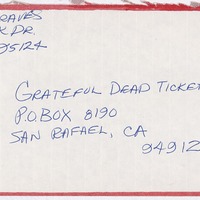 RAVES
K DR.
95124
GRATEFUL DEAD TICKE
P.O. BOX 8190
SAN RAFAEL, CA
94912